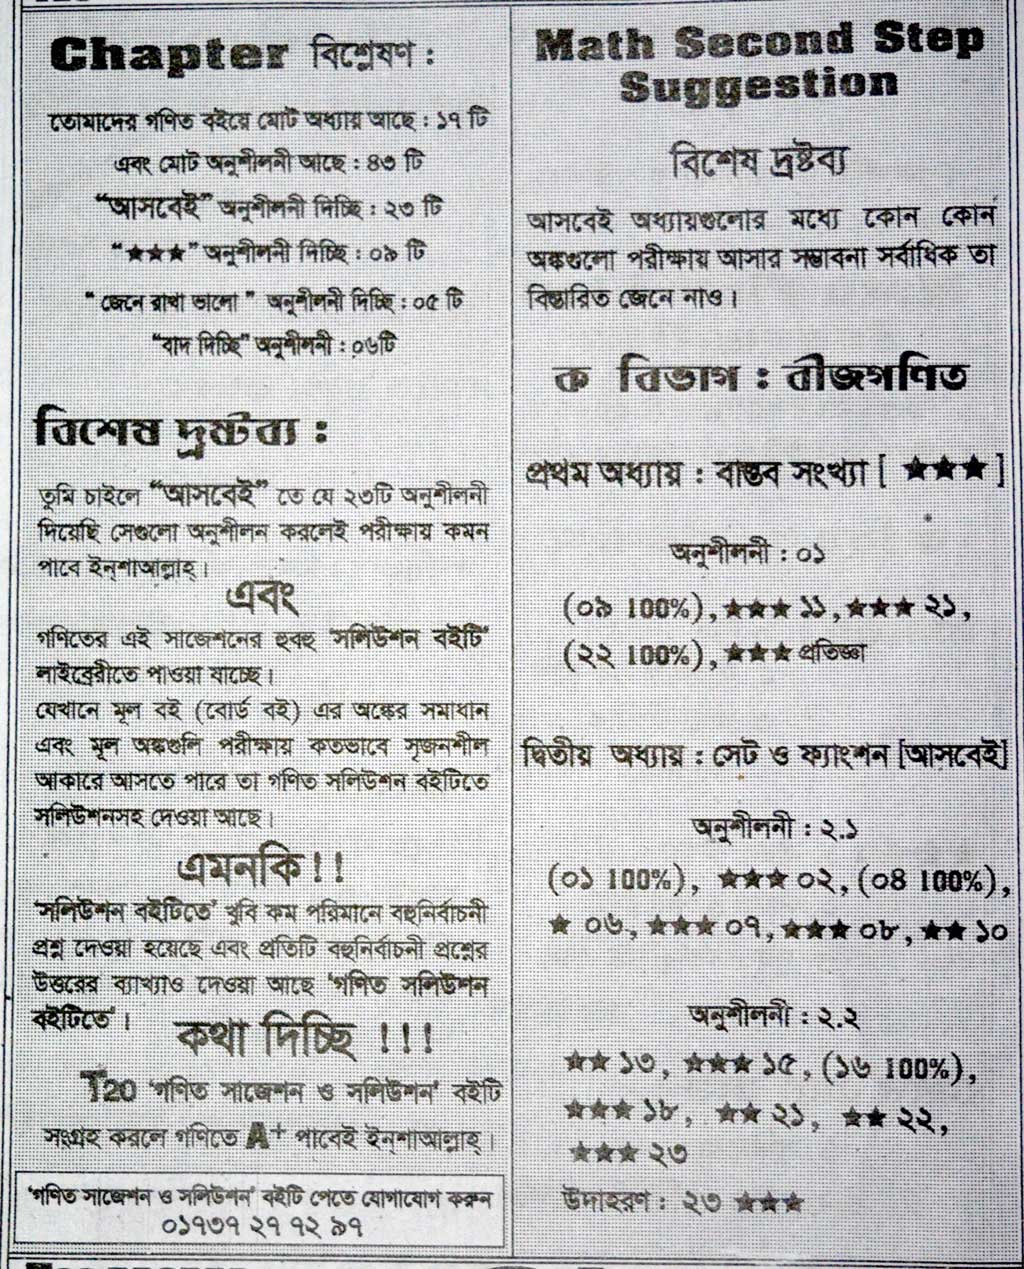 Chapter বিশ্লেষণ :
তোমাদের গণিত বইয়ে মোট অধ্যায় আছে : ১৭ টি
এবং মোট অনুশীলনী আছে : ৪৩ টি
“আসবেই” অনুশীলনী দিচ্ছি : ২৩ টি
“★★★” অনুশীলনী দিচ্ছি : ০৯ টি
“ জেনে রাখা ভালো ” অনুশীলনী দিচ্ছি : ০৫ টি
“বাদ দিচ্ছি” অনুশীলনী : ০৬টি
বিশেষ দ্রষ্টব্য :
তুমি চাইলে “আসবেই” তে যে ২৩টি অনুশীলনী
দিয়েছি সেগুলো অনুশীলন করলেই পরীক্ষায় কমন
পাবে ইন্‌শাআল্লাহ্‌।
এবং
গণিতের এই সাজেশনের হুবহু ‘সলিউশন বইটি’
লাইব্রেরীতে পাওয়া যাচ্ছে।
যেখানে মূল বই (বোর্ড বই) এর অঙ্কের সমাধান
এবং মূল অঙ্কগুলি পরীক্ষায় কতভাবে সৃজনশীল
আকারে আসতে পারে তা গণিত সলিউশন বইটিতে
সলিউশনসহ দেওয়া আছে।
এমনকি!!
‘সলিউশন বইটিতে’ খুবি কম পরিমানে বহুনির্বাচনী
প্রশ্ন দেওয়া হয়েছে এবং প্রতিটি বহুনির্বাচনী প্রশ্নের
উত্তরের ব্যাখ্যাও দেওয়া আছে ‘গণিত সলিউশন
বইটিতে’।
কথা দিচ্ছি !!!
T20 ‘গণিত সাজেশন ও সলিউশন’ বইটি
সংগ্রহ করলে গণিতে A+ পাবেই ইন্‌শাআল্লাহ্‌।
‘গণিত সাজেশন ও সলিউশন’ বইটি পেতে যোগাযোগ করুন
০১৭৩৭ ২৭ ৭২ ৯৭
Math Second Step
Suggestion
বিশেষ দ্রষ্টব্য
আসবেই অধ্যায়গুলোর মধ্যে কোন কোন
অঙ্কগুলো পরীক্ষায় আসার সম্ভাবনা সর্বাধিক তা
বিস্তারিত জেনে নাও।
ক বিভাগ : বীজগণিত
প্রথম অধ্যায় : বাস্তব সংখ্যা [ ★★★ ]
অনুশীলনী : ০১
(০৯ 100%), ★★★ ১১, ★★★ ২১,
(২২ 100%), ★★★ প্রতিজ্ঞা
দ্বিতীয় অধ্যায় : সেট ও ফ্যাংশন [আসবেই]
অনুশীলনী : ২.১
(০১ 100%), ★★★ ০২, (০৪ 100%),
★ ০৬, ★★★ ০৭, ★★★ ০৮, ★★ ১০
অনুশীলনী : ২.২
★★ ১৩, ★★★ ১৫, (১৬ 100%),
★★★ ১৮, ★★ ২১, ★★ ২২,
★★★ ২৩
উদাহরণ : ২৩ ★★★